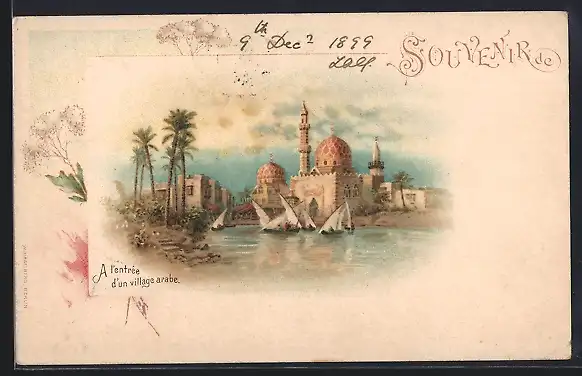 9th Dec? 1899
SOUVENIR de
A l'entrée
d'un village arabe.